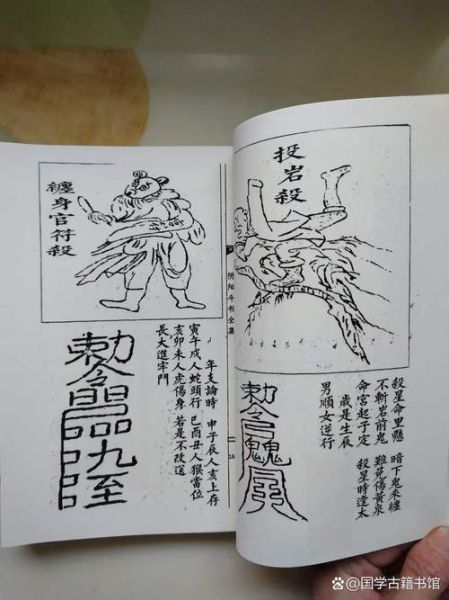 投岩殺
殺星命里懸　暗下鬼来纏
不斬岩前鬼　難免傷黃泉
命宮起子定　殺星時逢太
歲是生辰
男順女逆行
勅令
阴阳斗书全集
16
纏身官符殺
年支論時　申子辰人亥上存
寅午戌人蛇頭行　巳酉丑人猴當位
亥卯未人虎傷身　若是不改送
長大進牢門
勅令
@国学古籍书馆